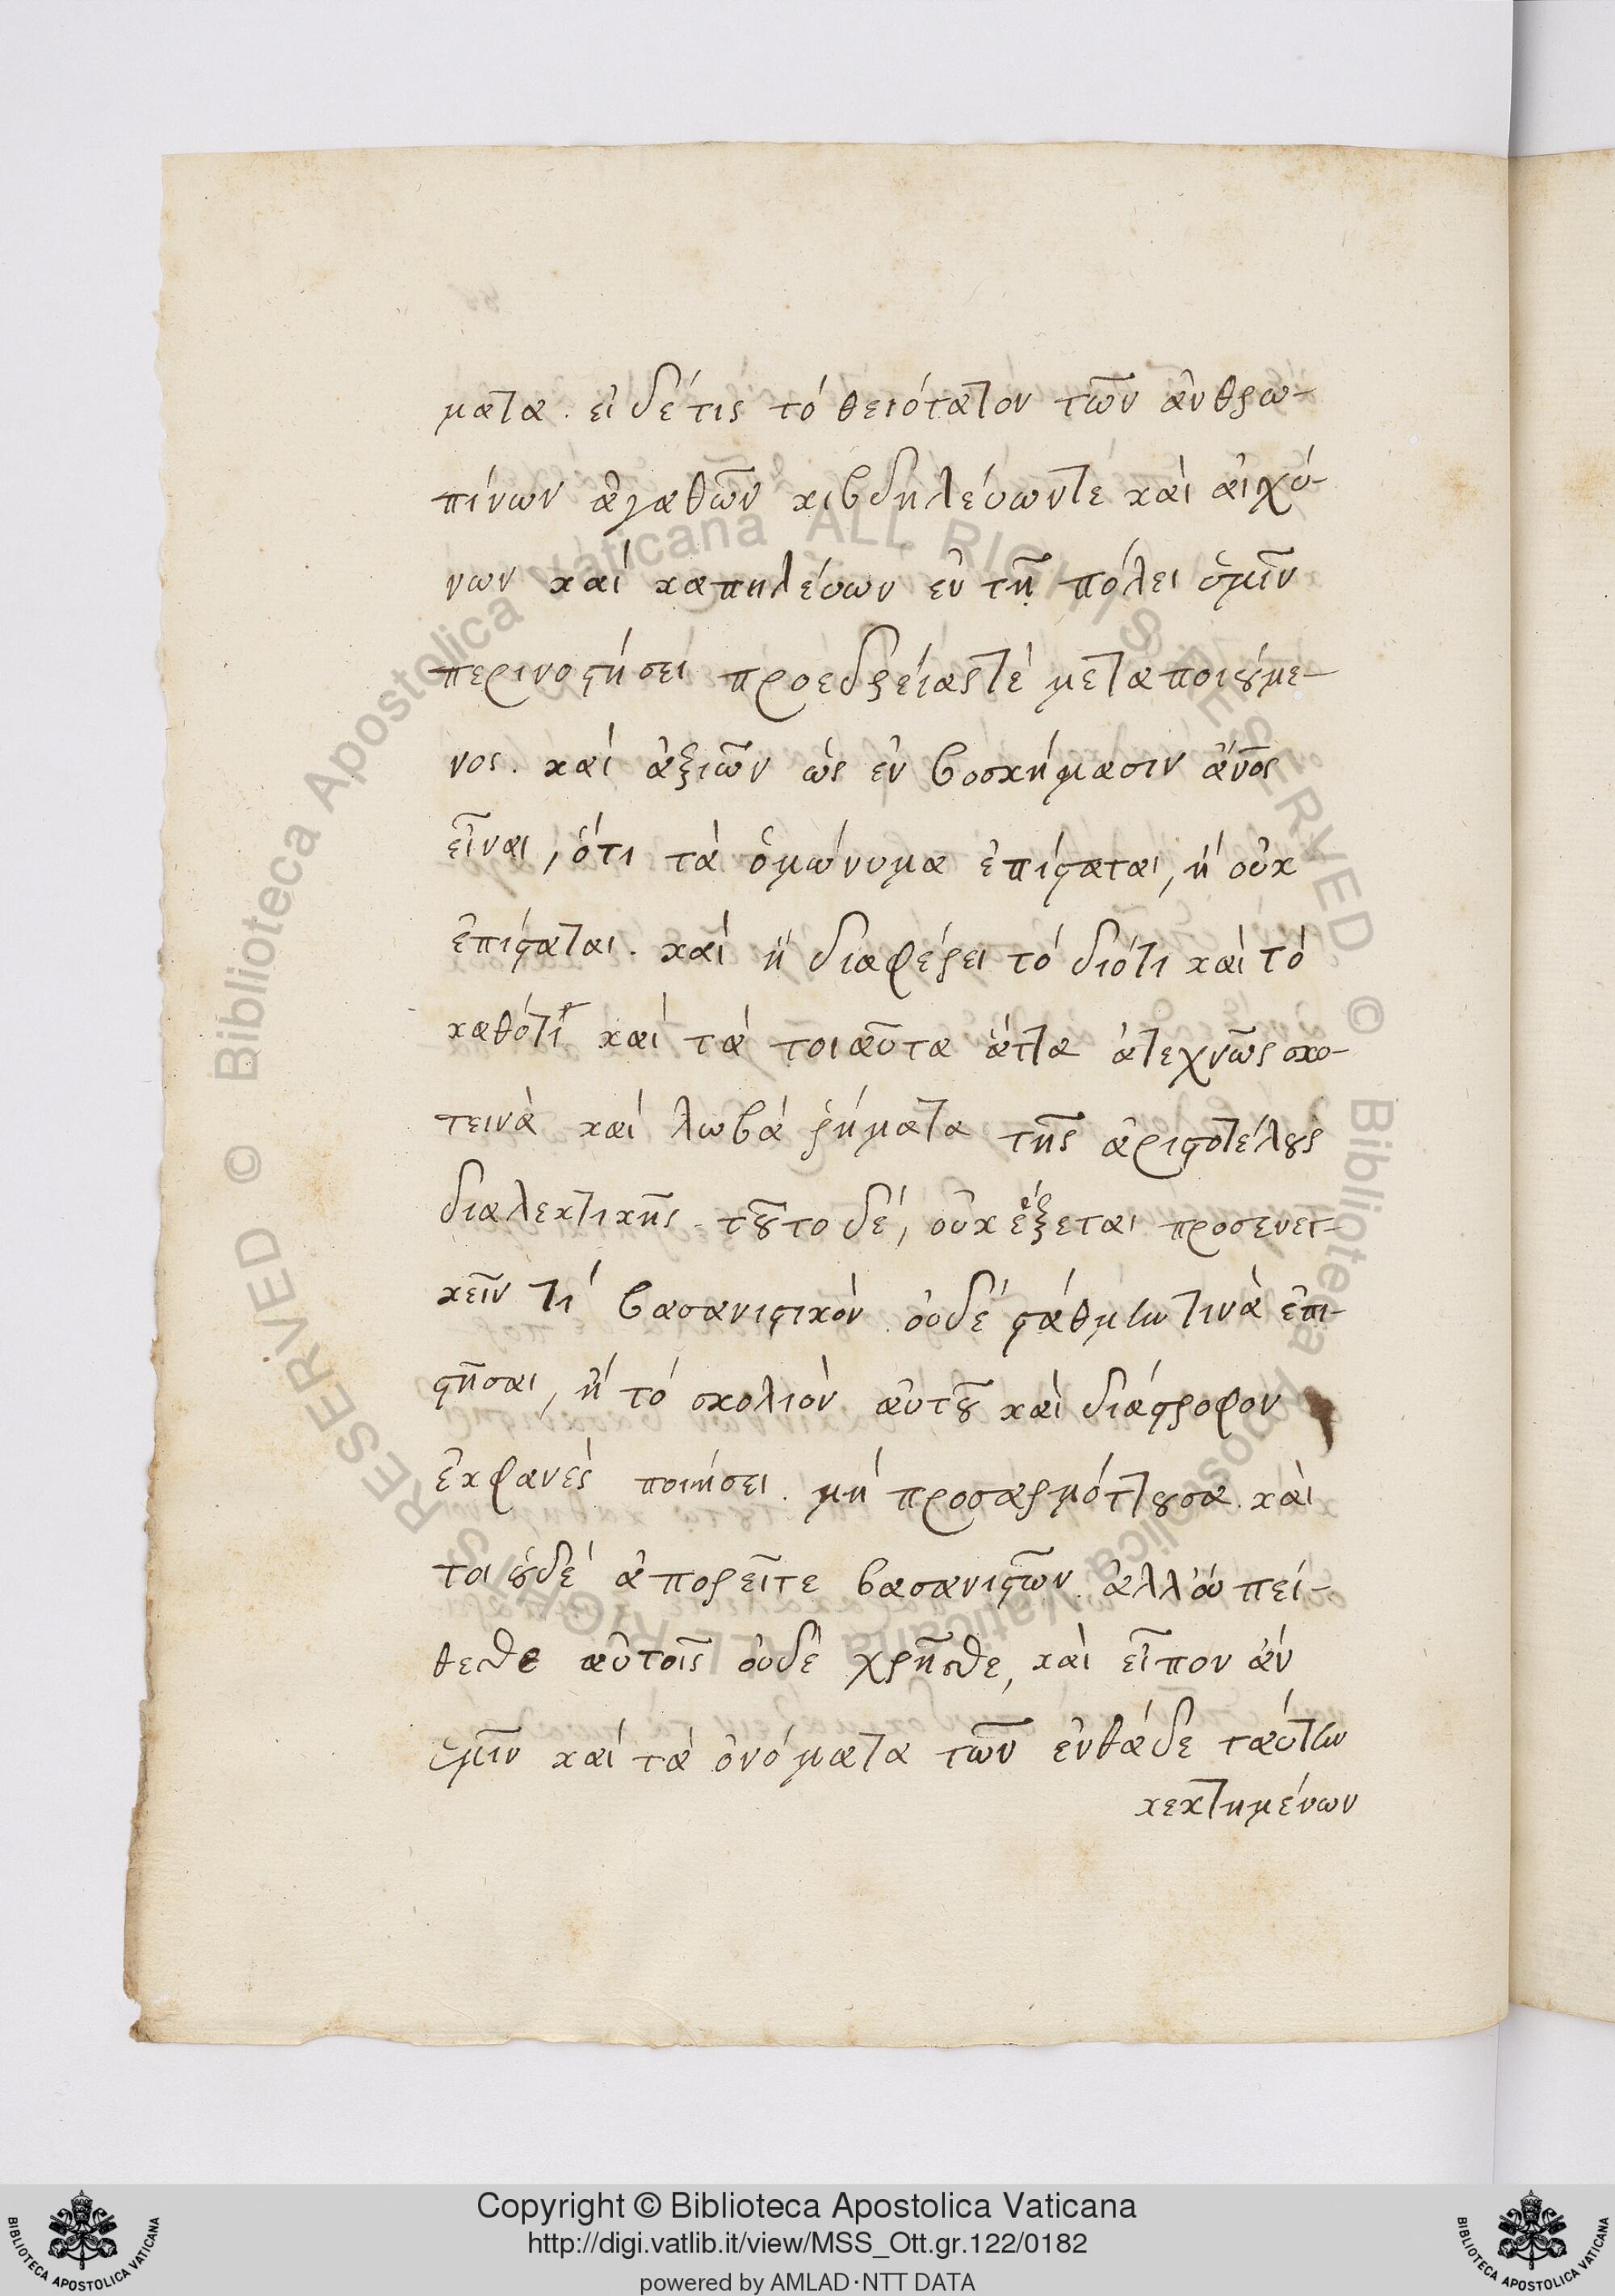 ματα. εἰ δέ τις τὸ θειότατον τῶν ἀνθρω-
πίνων ἀγαθῶν κιβδηλεύων τε καὶ αἰσχύ-
νων καὶ καπηλεύων ἐν τῇ πόλει ὑμῖν
περινοστήσει προεδρείας τὲ μεταποιούμε-
νος. καὶ ἀξιῶν ὡς ἐν βοσκήμασιν ἄνος
εἶναι, ὅτι τὰ ὁμώνυμα ἐπίσταται, ἢ οὐκ
ἐπίσταται. καὶ ἢ διαφέρει τὸ διότι καὶ τὸ
καθότι καὶ τὰ τοιαῦτα ἄττα ἀτεχνῶς σκο-
τεινὰ καὶ λωβὰ ῥήματα τῆς ἀριστοτέλους
διαλεκτικῆς τοῦτο δὲ, οὐκ ἔξεται προσενεγ-
κεῖν τί βασανιστικὸν οὐδὲ στάθμην τινὰ ἐπι-
στῆσαι, ἢ τὸ σκολιὸν αὐτοῦ καὶ διάστροφον
ἐκφανὲς ποιήσει. μὴ προσαρμόττουσα. καὶ
τοι οὐδὲ ἀπορεῖτε βασανιστῶν. ἀλλ' οὐ πεί-
θεσθε αὐτοῖς οὐδὲ χρῆσθε, καὶ εἶπον ἂν
ὑμῖν καὶ τὰ ὀνόματα τῶν ἐνθάδε ταύτην
κεκτημένων
Copyright © Biblioteca Apostolica Vaticana
http://digi.vatlib.it/view/MSS_Ott.gr.122/0182
powered by AMLAD·NTT DATA
BIBLIOTECA APOSTOLICA VATICANA
BIBLIOTECA APOSTOLICA VATICANA
© Biblioteca Apostolica Vaticana ALL RIGHTS RESERVED
© Biblioteca Apostolica Vaticana ALL RIGHTS RESERVED